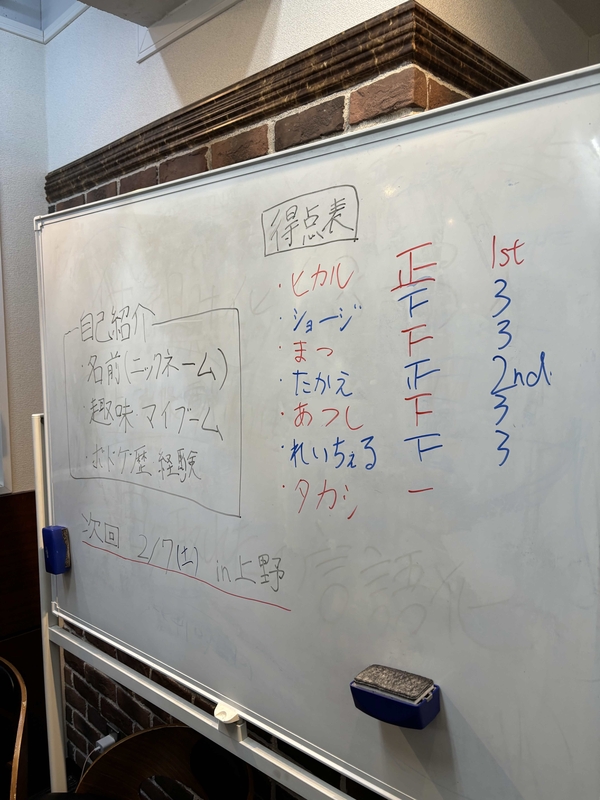 得点表
・ヒカル 正 1st
・ショージ 下 3
・まっ 下 3
・たかえ 正 2nd.
・あつし 下 3
・れいちぇる 下 3
・タカシ 一
自己紹介
・名前(ニックネーム)
・趣味・マイブーム
・ボドゲ歴 経験
次回 2/7(土) in 上野